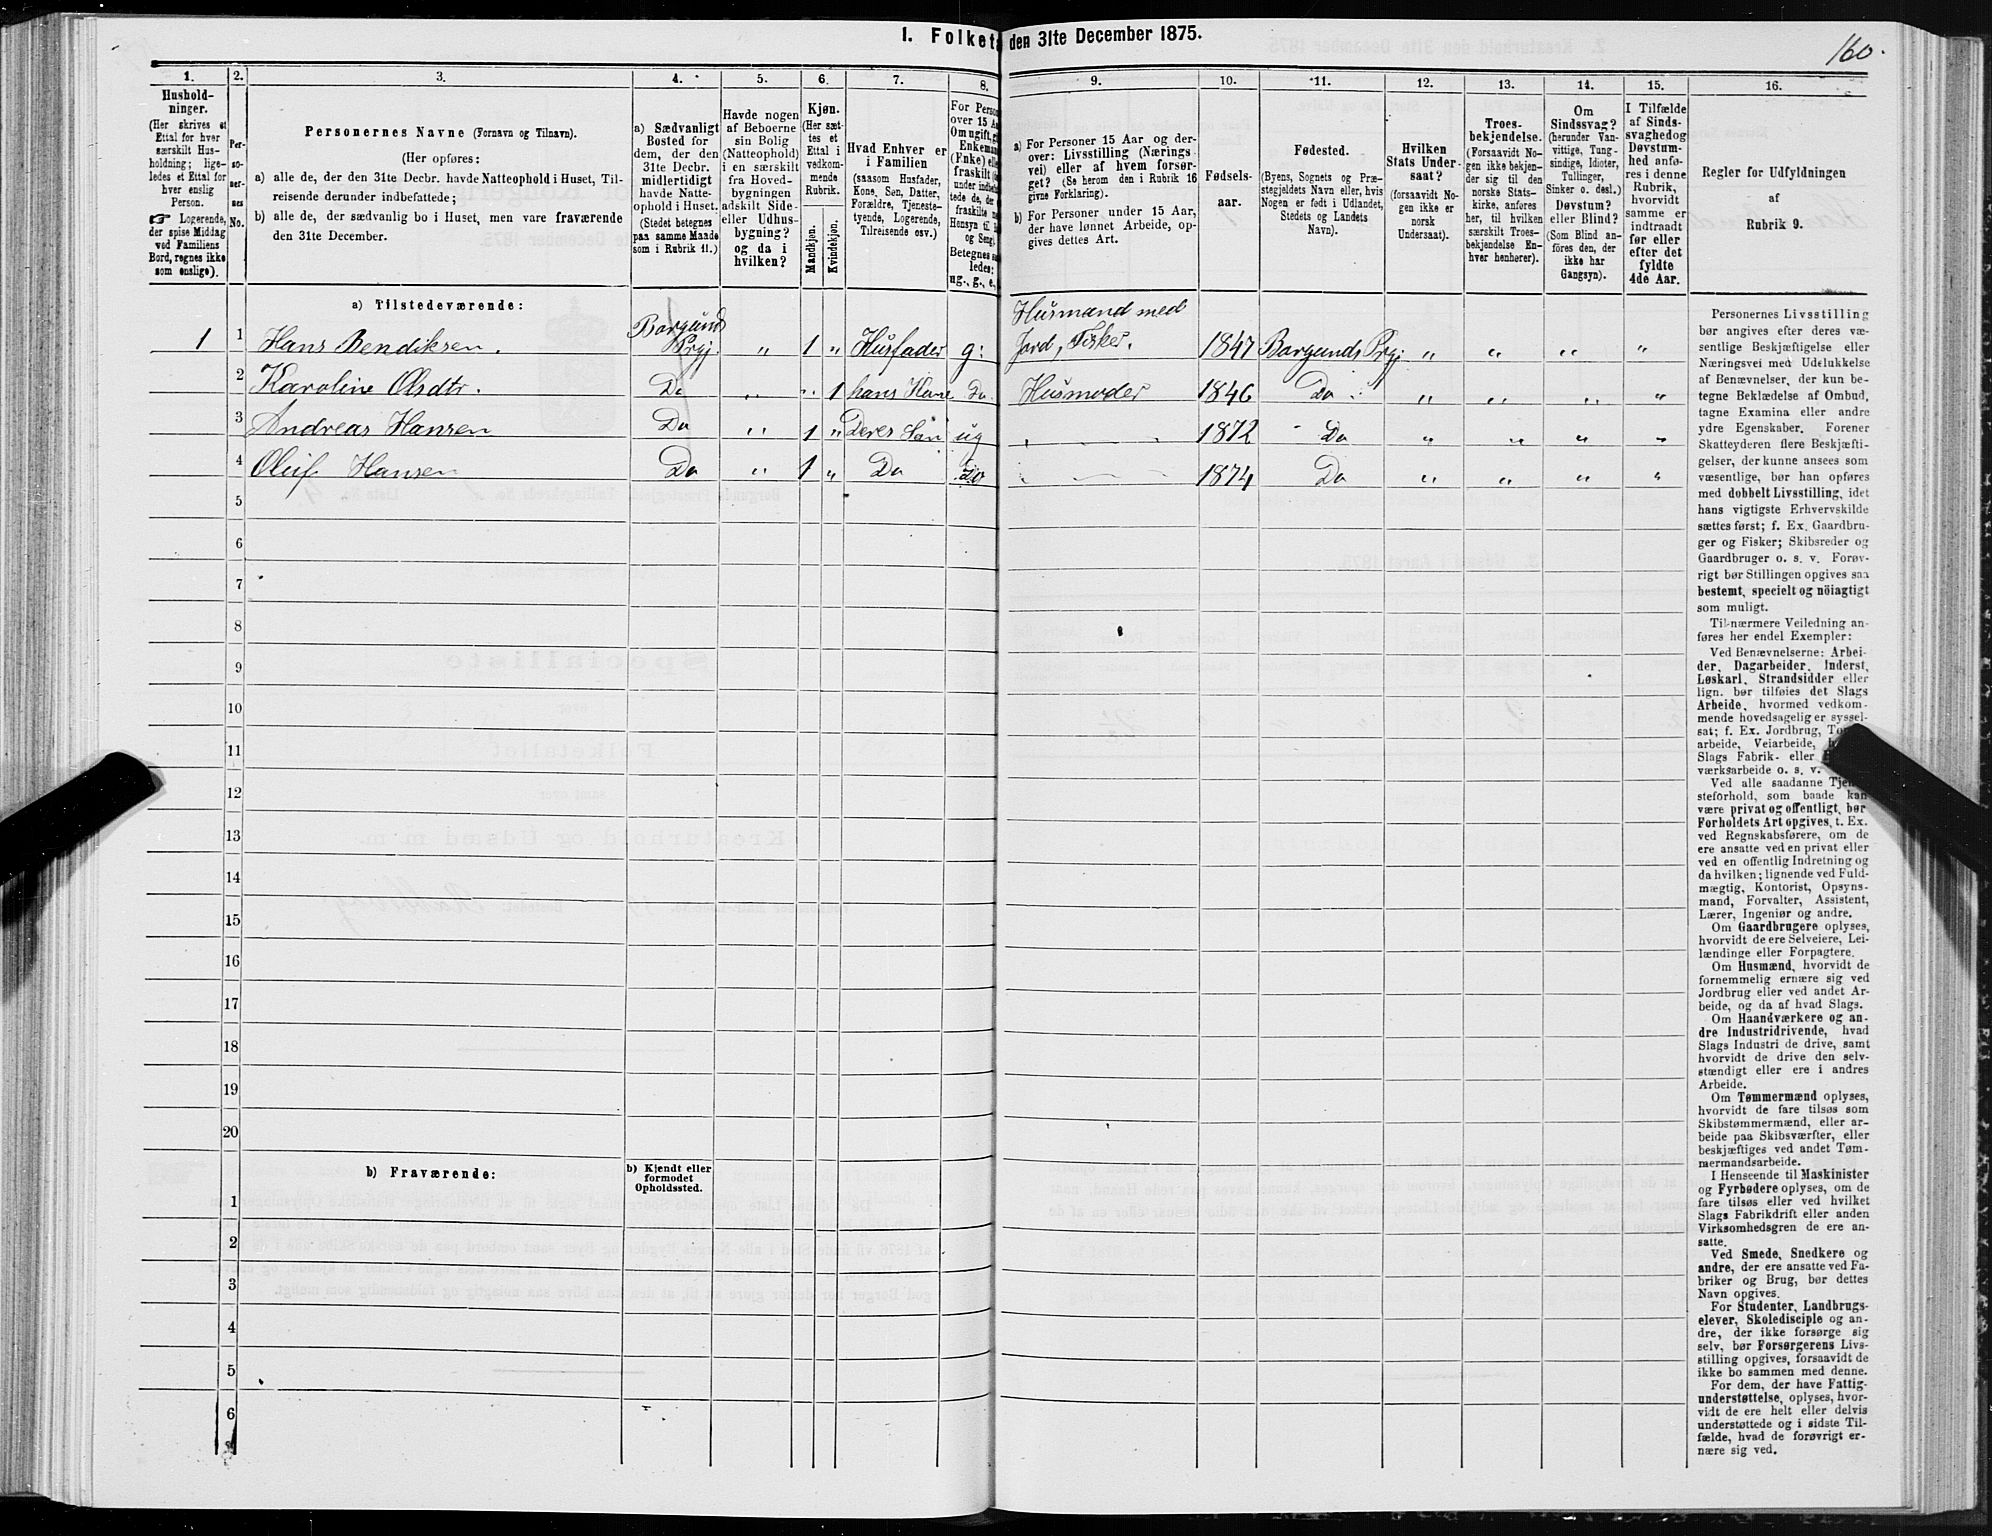 I. Folketa
den 31te December 1875.
160.
1.
2.
3.
4.
5.
6.
7.
8.
9.
10.
11.
12.
13.
14.
15.
16.
Hushold-
ninger.
(Her skrives et
Ettal for hver
særskilt Hus-
holdning; lige-
ledes et Ettal for
hver enslig
Person.
Logerende,
der spise Middag
ved Familiens
Bord, regnes ikke
som enslige).
Per-
so-
ner-
nes
No.
Personernes Navne (Fornavn og Tilnavn).
(Her opføres:
a) alle de, der den 31te Decbr. havde Natteophold i Huset, Til-
reisende derunder indbefattede;
b) alle de, der sædvanlig bo i Huset, men vare fraværende
den 31te December.
a) Sædvanligt
Bosted for
dem, der den
31te Decbr.
midlertidigt
havde Natte-
ophold i Huset.
(Stedet betegnes
paa samme Maade
som i Rubrik 11.)
Havde nogen
af Beboerne
sin Bolig
(Natteophold)
i en særskilt
fra Hoved-
bygningen
adskilt Side-
eller Udhus-
bygning?
og da i
hvilken?
Kjøn.
(Her sæt-
tes et
Ettal i
vedkom-
mende
Rubrik.
Mandkjøn.
Kvindekjøn.
Hvad Enhver er
i Familien
(saasom Husfader,
Kone, Søn, Datter,
Forældre, Tjeneste-
tyende, Logerende,
Tilreisende osv.)
For Person
over 15 Aa
Om ugift, g
Enkemand
(Enke) elle
fraskilt (h
under indbef
tede de, der
fraskilte m
Hensyn til B
og Seng).
Betegnes saa
ledes:
ug., g., e.,
a) For Personer 15 Aar og der-
over: Livsstilling (Nærings-
vei) eller af hvem forsør-
get? (Se herom den i Rubrik 16
givne Forklaring).
b) For Personer under 15 Aar,
der have lønnet Arbeide, op-
gives dettes Art.
Fødsels-
aar.
Fødested.
(Byens, Sognets og Præ-
stegjeldets Navn eller, hvis
Nogen er født i Udlandet,
Stedets og Landets
Navn).
Hvilken
Stats Under-
saat?
(forsaavidt No-
gen ikke er
norsk
Undersaat).
Troes-
bekjendelse.
(Forsaavidt No-
gen ikke bekjen-
der sig til den
norske Stats-
kirke, anføres
her, til hvilken
særskilt Troes-
bekjendelse En-
hver henhører).
Om
Sindssvag?
(herunder Van-
vittige, Tung-
sindige, Idioter,
Tullinger,
Sinker o. desl.)
Døvstum?
eller Blind?
(Som Blind an-
føres den, der
ikke har
Gangsyn).
I Tilfælde
af Sinds-
svaghedog
Døvstum-
hed anfø-
res i denne
Rubrik,
hvorvidt
samme er
indtraadt
før eller
efter det
fyldte
4de Aar.
Regler for Udfyldningen
af
Rubrik 9.
a) Tilstedeværende:
1 1 Hans Bendiksen. Borgunds Prgj. „ 1 „ Husfader g: Husmand med Jord, Fisker. 1847 Borgunds Prgj „ „ „ „
2 Karoline Olsdtr. Do „ „ 1 hans Kone Do. Husmoder 1846 Do „ „ „ „
3 Andreas Hansen Do „ 1 „ Deres Søn ug „ 1872 Do „ „ „ „
4 Oluf Hansen Do „ 1 „ Do Do 1874 Do „ „ „ „
5
6
7
8
9
10
11
12
13
14
15
16
17
18
19
20
b) Fraværende:
b) Kjendt eller
formodet
Opholdssted.
1
2
3
4
5
6
Personernes Livsstilling
bør angives efter deres væ-
sentlige Beskjæftigelse eller
Næringsvei med Udelukkelse
af Benævnelser, der kun be-
tegne Beklædelse af Ombud,
tagne Examina eller andre
ydre Egenskaber. Forener
Skatteyderen flere Beskjæfti-
gelser, der kunne ansees som
væsentlige, bør han opføres
med dobbelt Livsstilling, idet
hans vigtigste Erhvervskilde
sættes først; f. Ex. Gaardbru-
ger og Fisker; Skibsreder og
Gaardbruger o. s. v. Forøv-
rigt bør Stillingen opgives saa
bestemt, specielt og nöiagtigt
som muligt.
Til nærmere Veiledning an-
føres her endel Exempler:
Ved Benævnelserne: Arbei-
der, Dagarbeider, Inderst,
Løskarl, Strandsidder eller
lign. bør tilføies det Slags
Arbeide, hvormed vedkom-
mende hovedsagelig er syssel-
sat; f. Ex. Jordbrug,
arbeide, Veiarbeide,
Slags Fabrik- eller
værksarbeide o. s. v.
Ved alle saadanne Tjen-
steforhold, som baade kan
være privat og offentligt, bør
Forholdets Art opgives, t. Ex.
ved Regnskabsførere, om de
ere ansatte ved en privat eller
ved en offentlig Indretning og
da hvilken; lignende ved Fuld-
mægtig, Kontorist, Opsyns-
mand, Forvalter, Assistent,
Lærer, Ingeniør og andre.
Om Gaardbrugere oplyses,
hvorvidt de ere Selveiere, Lei-
lændinge eller Forpagtere.
Om Husmænd, hvorvidt de
fornemmelig ernære sig ved
Jordbrug eller ved andet Ar-
beide, og da af hvad Slags.
Om Haandværkere og an-
dre Industridrivende, hvad
Slags Industri de drive, samt
hvorvidt de drive den selv-
stændigt eller ere i andres
Arbeide.
Om Tømmermænd oplyses,
hvorvidt de fare tilsøs som
Skibstømmermænd, eller ar-
beide paa Skibsværfter, eller
beskjæftiges ved andet Tøm-
mermandsarbeide.
I Henseende til Maskinister
og Fyrbødere oplyses, om de
fare tilsøs eller ved hvilket
Slags Fabrikdrift eller anden
Virksomhedsgren de ere an-
satte.
Ved Smede, Snedkere og
andre, der ere ansatte ved Fa-
briker og Brug, bør dettes
Navn opgives.
For Studenter, Landbrugs-
elever, Skoledisciple og an-
dre, der ikke forsørge sig
selv, bør Forsørgerens Livs-
stilling opgives, forsaavidt de
ikke bo sammen med denne.
For dem, der have Fattig-
understøttelse, oplyses, hvor-
vidt de ere helt eller delvis
understøttede og i sidste Til-
fælde, hvad de forøvrigt er-
nære sig ved.